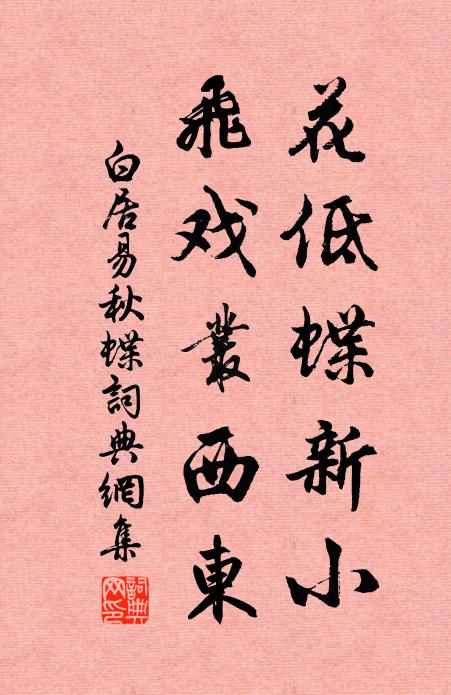 花低蝶新小
飛戏叢西東
白居易秋蝶詞典網集
詞典网印